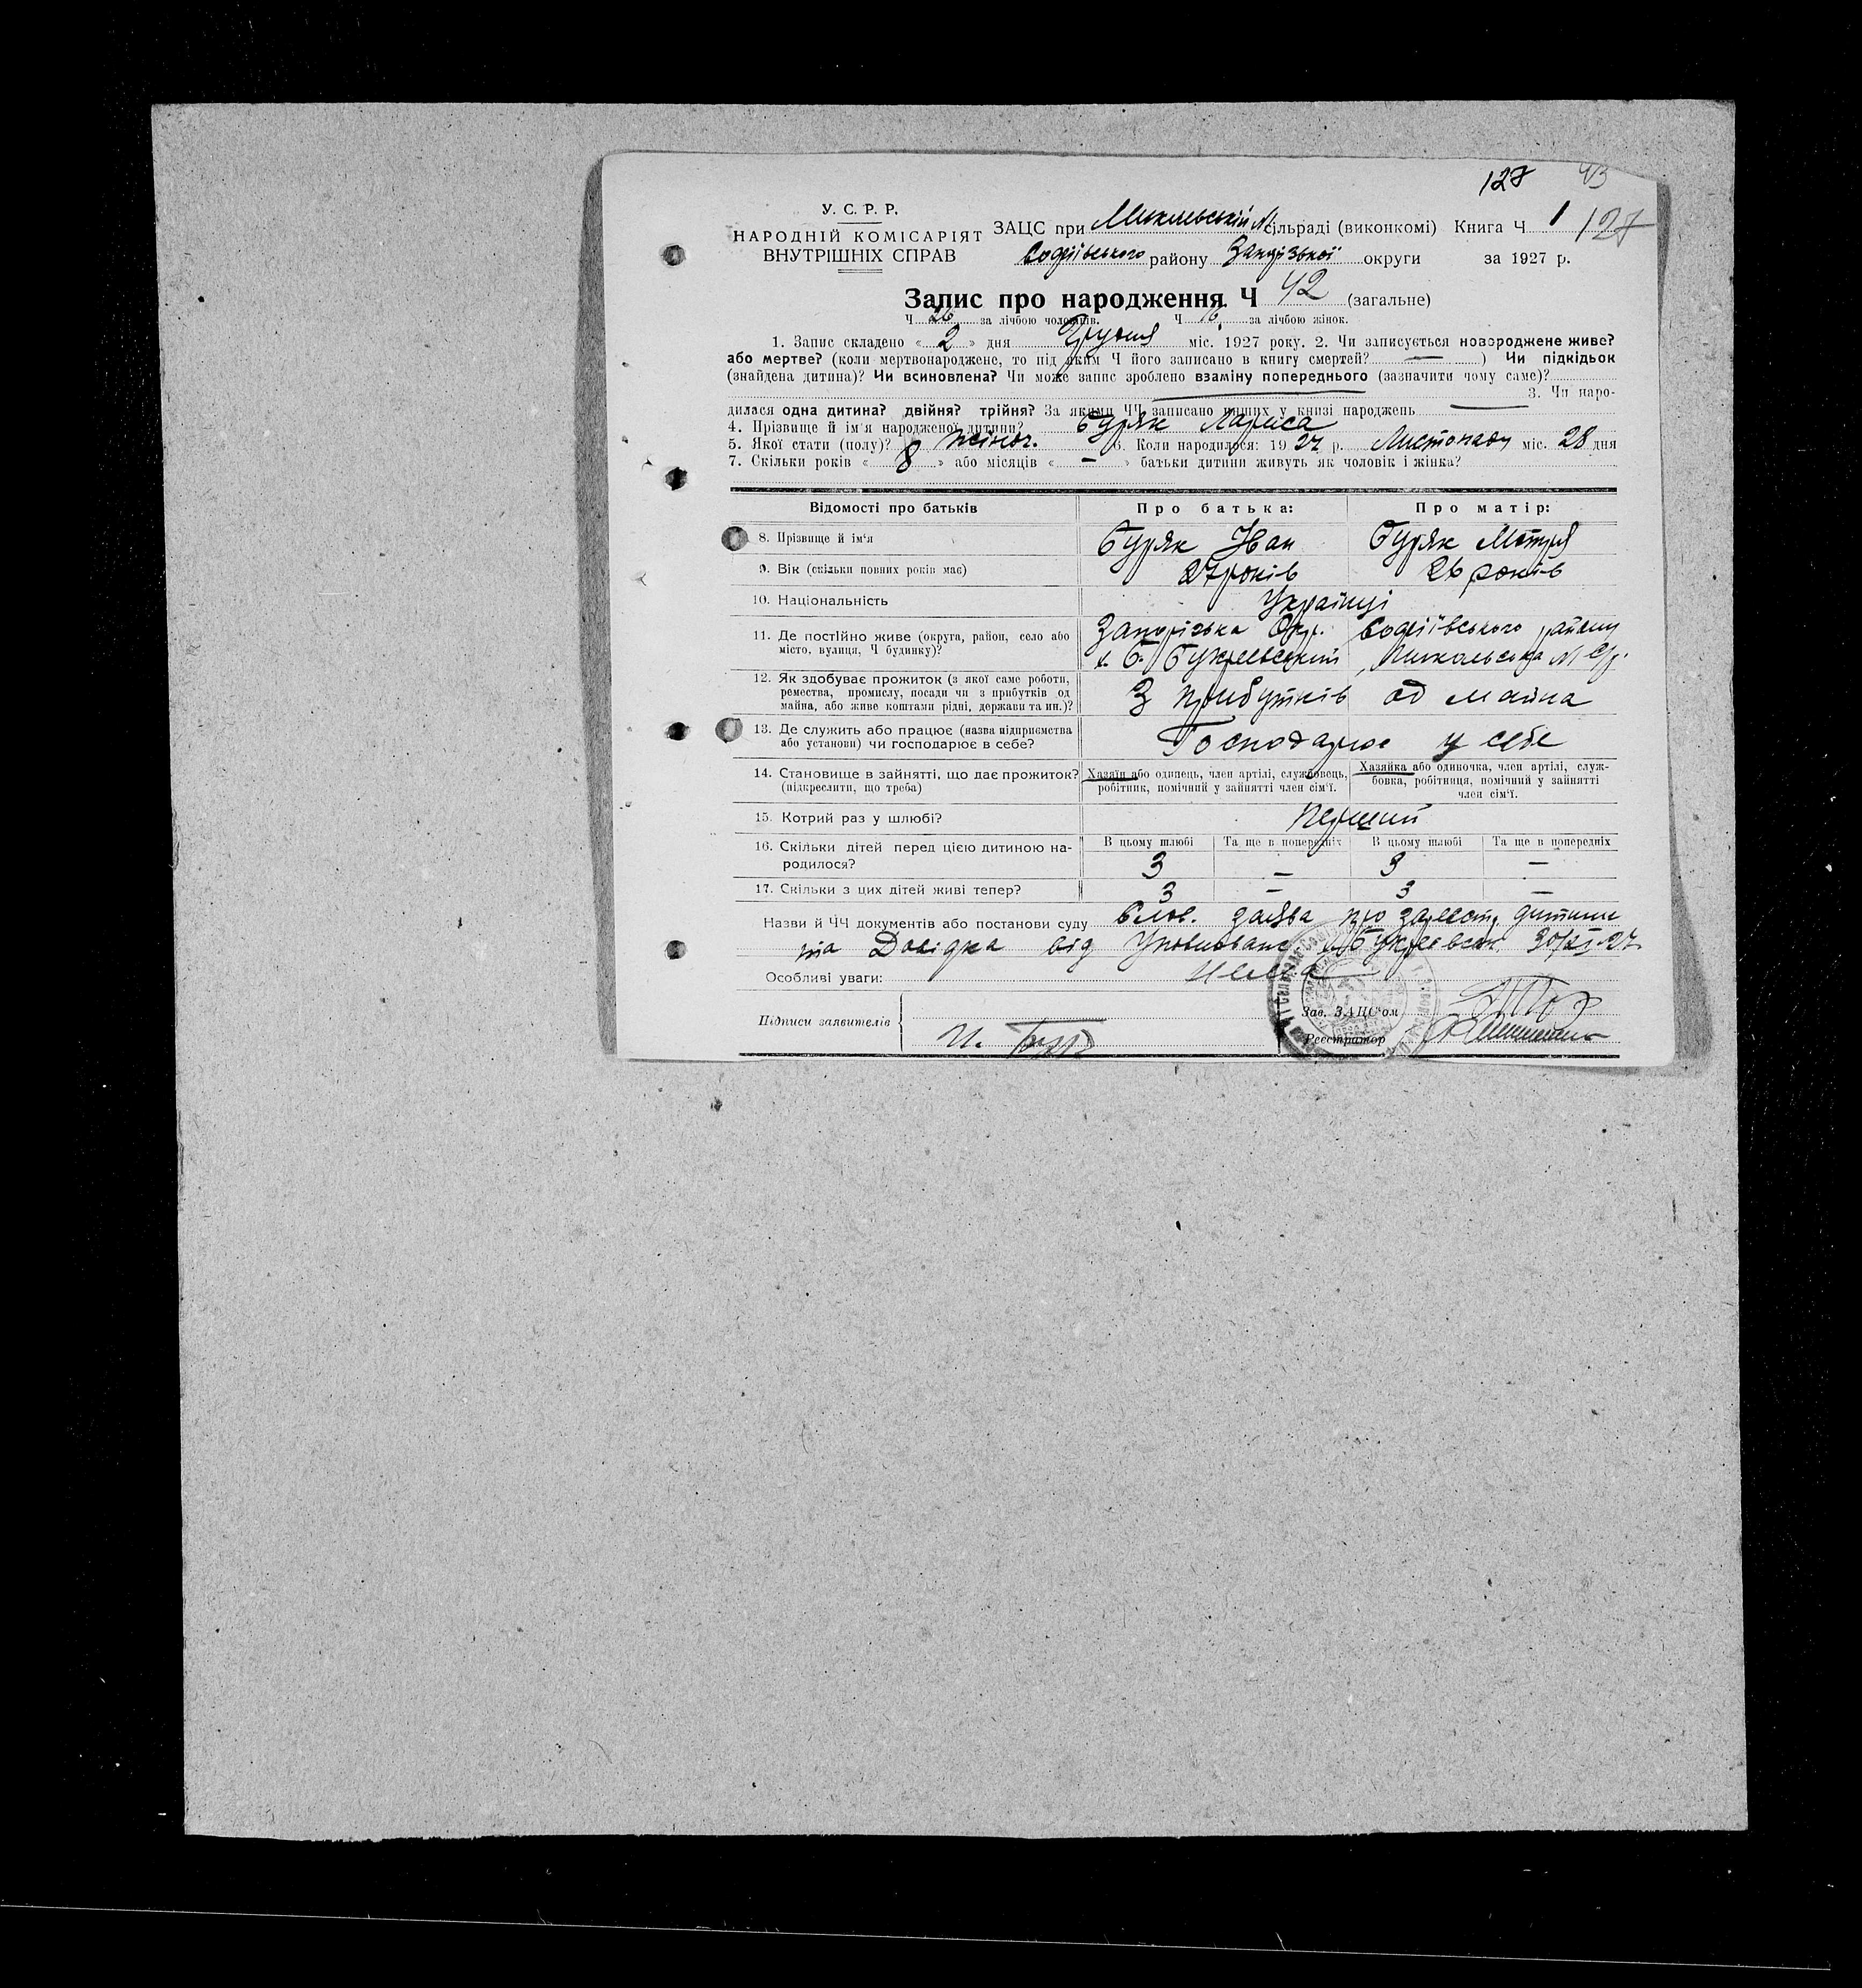 127 43
У. С. Р. Р.
НАРОДНІЙ КОМІСАРІЯТ
ВНУТРІШНІХ СПРАВ
ЗАЦС при Микільській М. сільраді (виконкомі) Книга Ч 1 127
Софіївського району Запорізької округи за 1927 р.
Запис про народження Ч 42 (загальне)
Ч 26 за лічбою чоловіків. Ч 16 за лічбою жінок.
1. Запис складено « 2 » дня Грудня міс. 1927 року. 2. Чи записується новороджене живе?
або мертве? (коли мертвонароджене, то під яким Ч його записано в книгу смертей? — ) Чи підкідьок
(знайдена дитина)? Чи всиновлена? Чи може запис зроблено взаміну попереднього (зазначити чому саме)?
3. Чи наро-
дилася одна дитина? двійня? трійня? За якими ЧЧ записано инших у книзі народжень —
4. Прізвище й ім'я народженої дитини? Буряк Лариса
5. Якої стати (полу)? жіноч. 6. Коли народилося: 1927 р. Листопаду міс. 28 дня
7. Скільки років « 8 » або місяців « — » батьки дитини живуть як чоловік і жінка?
Відомості про батьків Про батька: Про матір:
8. Прізвище й ім'я Буряк Іван Буряк Мотря
9. Вік (скільки повних років має) 27 років 26 років
10. Національність Українці
11. Де постійно живе (округа, район, село або Запорізька Окр. Софіївського району
місто, вулиця, Ч будинку)? х. Б. Букреевський, Микольська М С/р.
12. Як здобуває прожиток (з якої саме роботи,
ремества, промислу, посади чи з прибутків од
майна, або живе коштами рідні, держави та ин.)? З прибутків од майна
13. Де служить або працює (назва підприємства
або установи) чи господарює в себе? Господарює у себе
14. Становище в зайнятті, що дає прожиток? Хазяїн або одинець, член артілі, службовець, Хазяйка або одиночка, член артілі, служ-
(підкреслити, що треба) робітник, помічний у зайнятті член сім'ї. бовка, робітниця, помічний у зайнятті
член сім'ї.
15. Котрий раз у шлюбі? Перший
16. Скільки дітей перед цією дитиною на- В цьому шлюбі Та ще в попередніх В цьому шлюбі Та ще в попередніх
родилося? 3 — 3 —
17. Скільки з цих дітей живі тепер? 3 — 3 —
Назви й ЧЧ документів або постанови суду Слов. заява про зареєст. дитини
та Довідка від Уповноваж. х. Букреевськ. 30/XI-27
Особливі уваги: Нема
Підписи заявителів
Зав. ЗАЦС'ом
И. Буряк Реєстратор